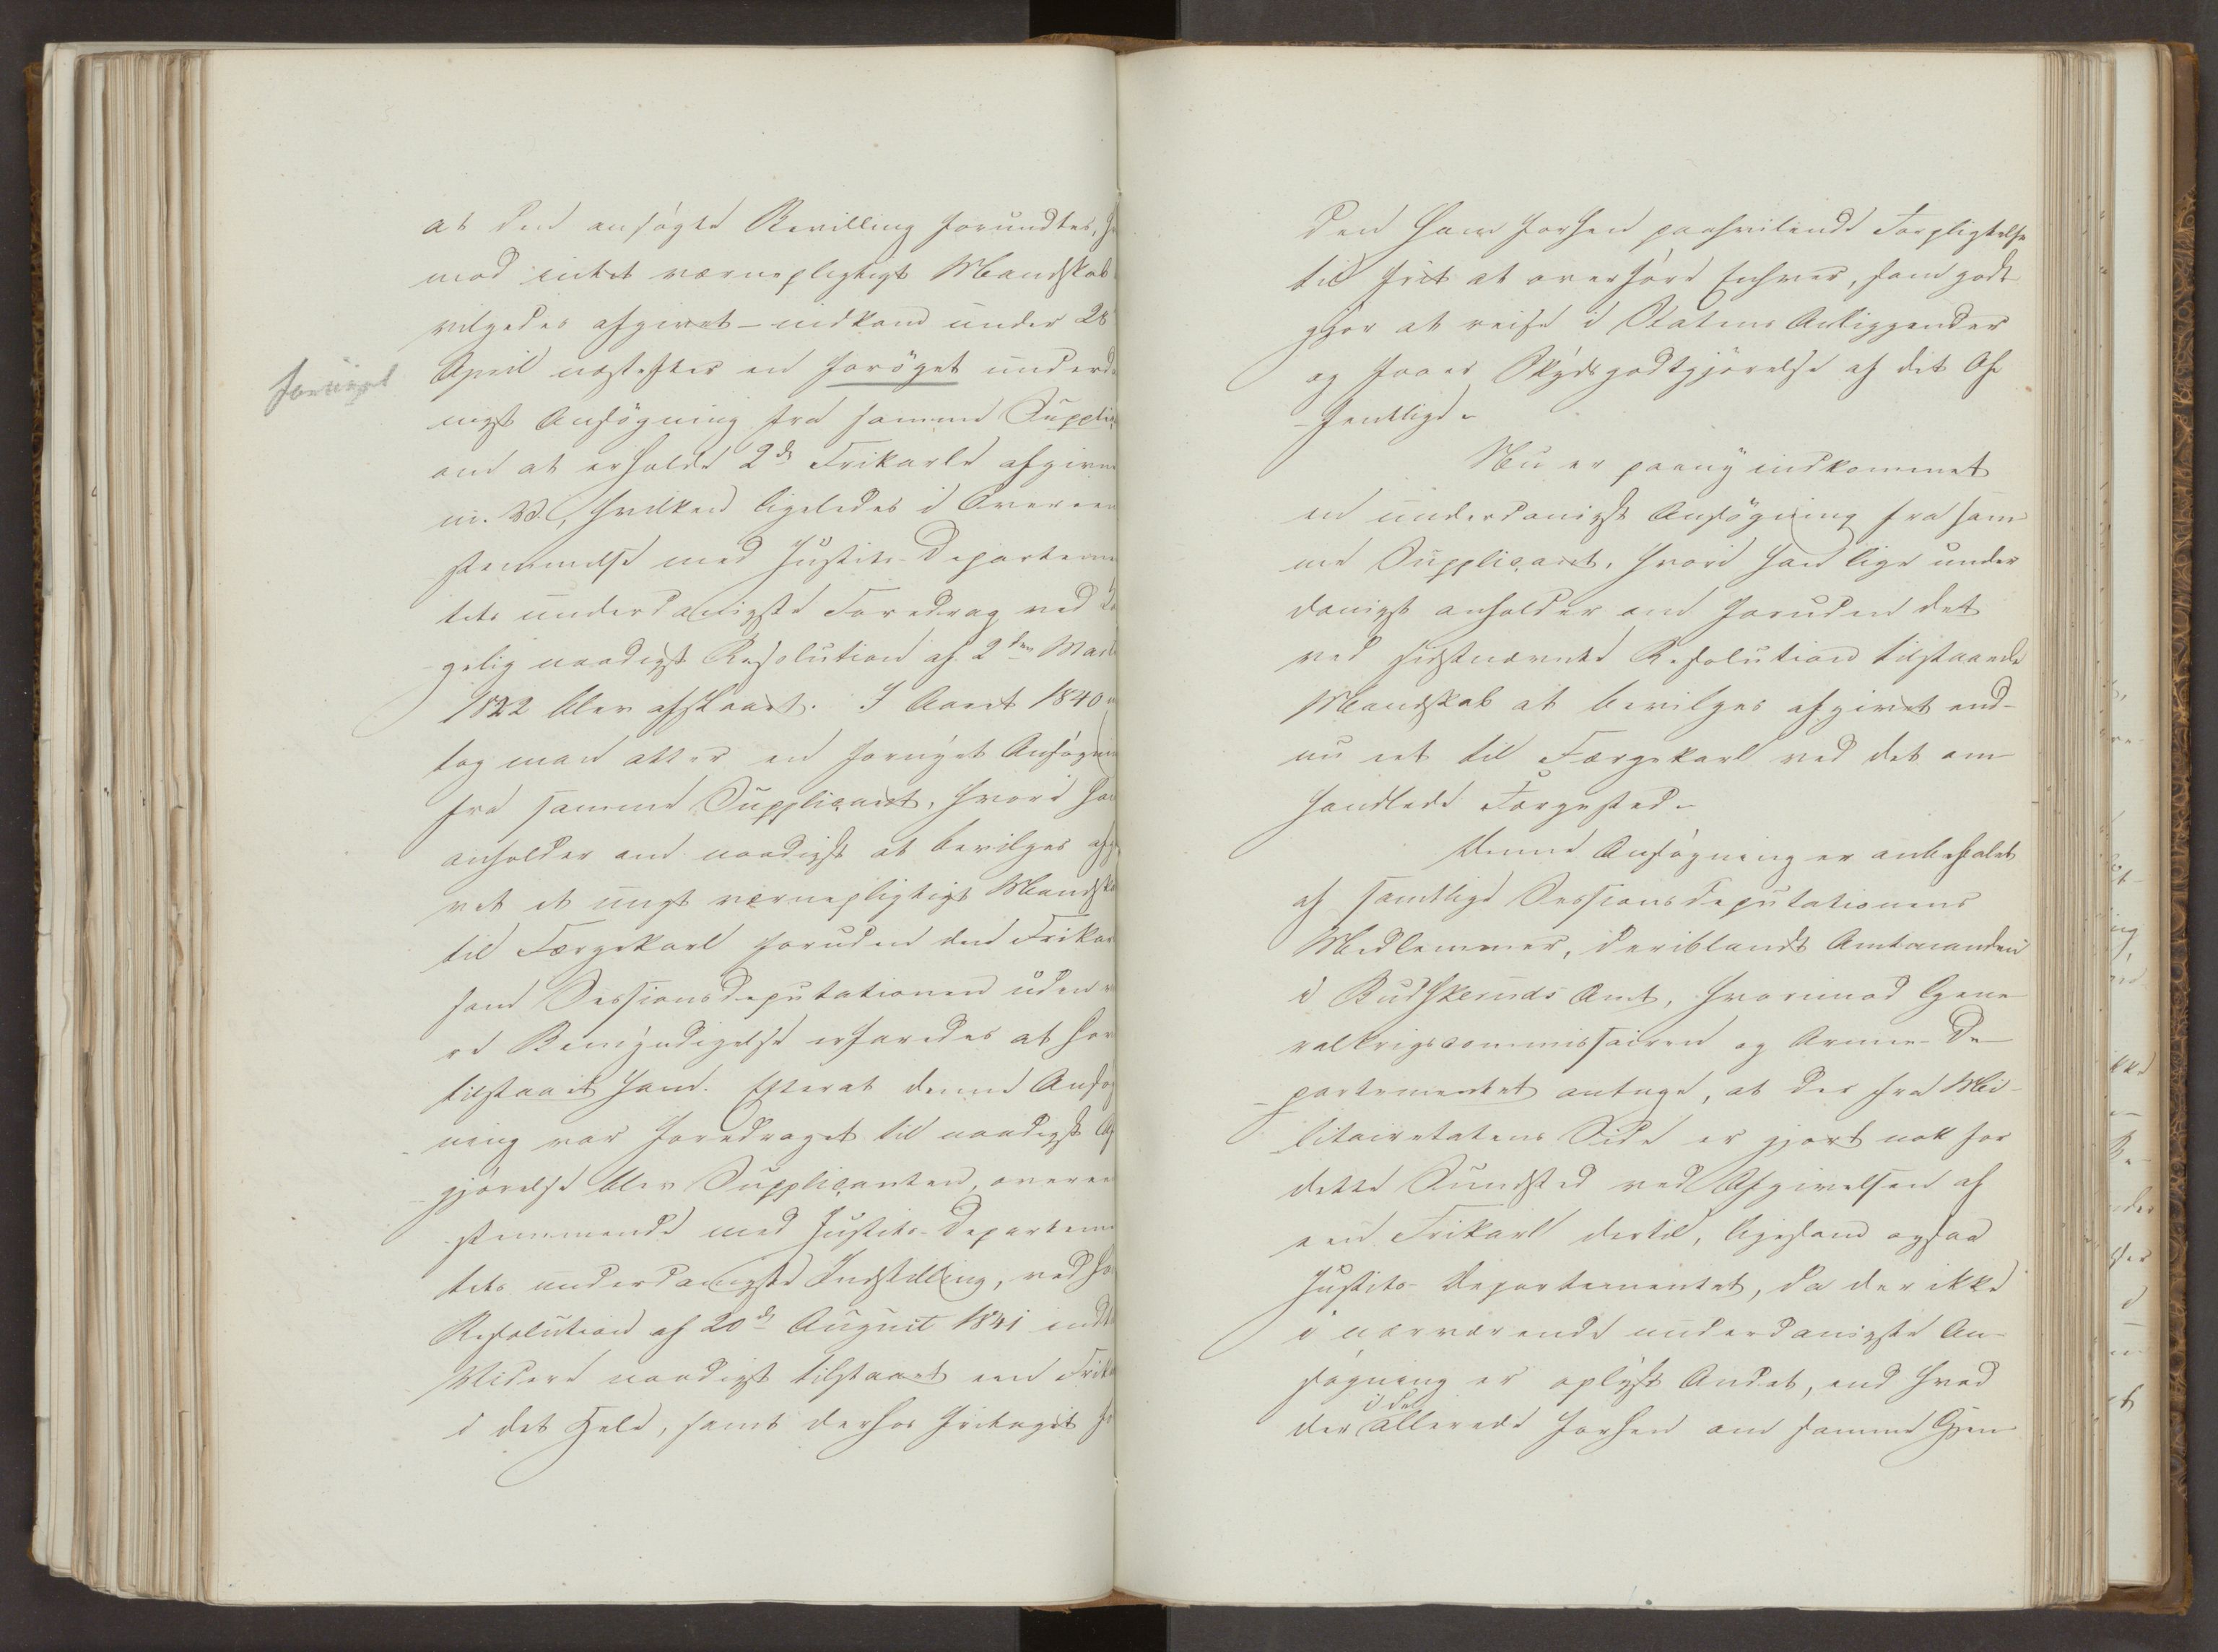 at den ansøgte Bevilling forundtes, hvor
mod intet værnepligtigt Mandskab
vilgedes afgivet – indkom under 28
April næstefter en forøget underda
fornyet
nigst Ansøgning fra samme Supplic
om at erholde 2de Frikarle afgivne
m. V., hvilken ligeledes i Overeen
stemmelse med Justits-Departemen
tets underdanigste Foredrag ved
gelig naadigst Resolution af 2den Marts
1822 blev afslaaet. I Aaret 1840
tog man atter en fornyet Ansøgning
fra samme Supplicant, hvori han
anholder om naadigst at bevilges afgi
vet et ungt værnepligtigt Mandskab
til Færgekarl foruden den Frikarl
som Sessionsdeputationen uden
re Bemyndigelse erfaredes at have
tilstaaet ham. Efterat denne Ansøg
ning var foredraget til naadigst Af
gjørelse blev Supplicanten, overeen
stemmende med Justits-Departemen
tets underdanigste Indstilling, ved
Resolution af 20de August 1841 indtil
Videre naadigst tilstaaet een Frikarl
i det Hele, samt derhos fritaget for
den ham forhen paahvilende Forpligtelse
til frit at overføre Enhver, som godt
gjør at reise i Statens Anliggender
og faaer Skydsgodtgjørelse af det Of
fentlige.
Nu er paany indkommet
en underdanigst Ansøgning fra sam
me Supplicant, hvori han lige under
danigst anholder om foruden det
ved sidstnævnte Resolution tilstaaede
Mandskab at bevilges afgivet end-
nu eet til Færgekarl ved det om
handlede Færgested.
Denne Ansøgning er anbefalet
af samtlige Sessionsdeputationens
Medlemmer, deriblandt Amtmanden
i Budskeruds Amt, hvorimod Gene
ralkrigscommissairen og Armee-De
partementet antage, at der fra Mi-
litairetatens Side er gjort nok for
dette Sundsted ved Afgivelsen af
een Frikarl dertil, ligesom ogsaa
Justits-Departementet, da der ikke
i nærværende underdanigste An-
søgning er oplyst Andet, end hvad
i de
der allerede forhen om samme Gjen